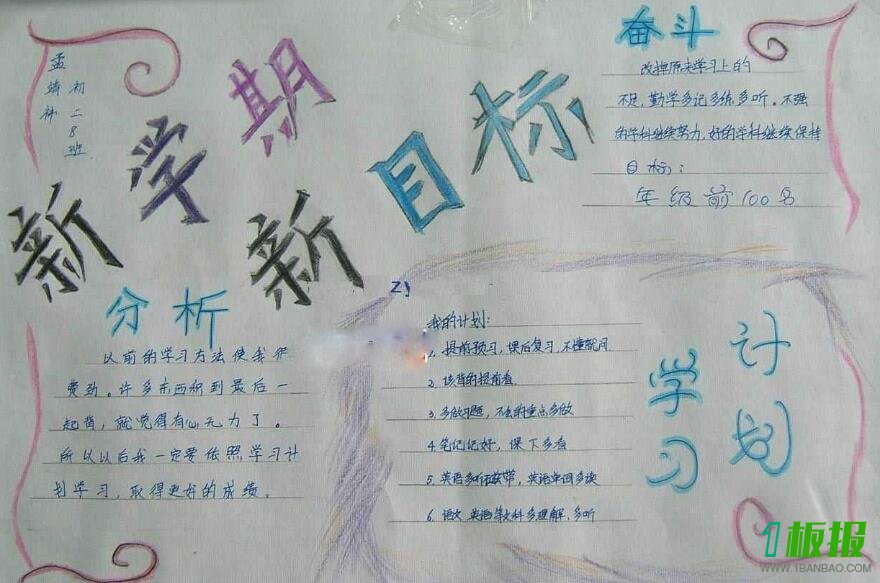 初二8班
新学期
新目标
奋斗
改掉原来学习上的
不足,勤学多记多练多听。不强
的学科继续努力,好的学科继续保持
目标:
年级前100名
分析
以前的学习方法使我很
费劲。许多东西积到最后一
起背,就觉得有心无力了。
所以以后我一定要依照学习计
划学习,取得更好的成绩。
我的计划:
1. 提前预习,课后复习,不懂就问
2. 该背的提前背
3. 多做习题,不会的重点多做
4. 笔记记好,课下多看
5. 英语多听磁带,英语单词多读
6. 语文 英语等文科多理解,多听
学习
计划
1板报
WWW.1BANBAO.COM